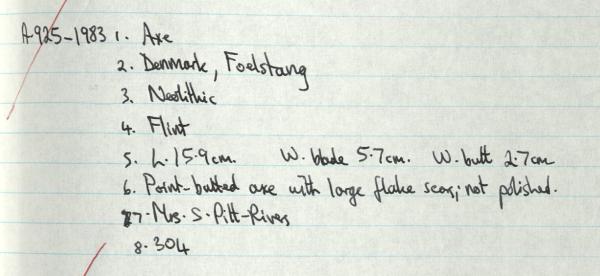 A-925-1983 1. Axe
2. Denmark, Foelstang
3. Neolithic
4. Flint
5. L. 15.9cm. W. blade 5.7cm. W. butt 2.7cm
6. Point-butted axe with large flake scars; not polished.
7. Mrs. S. Pitt-Rivers
8. 304